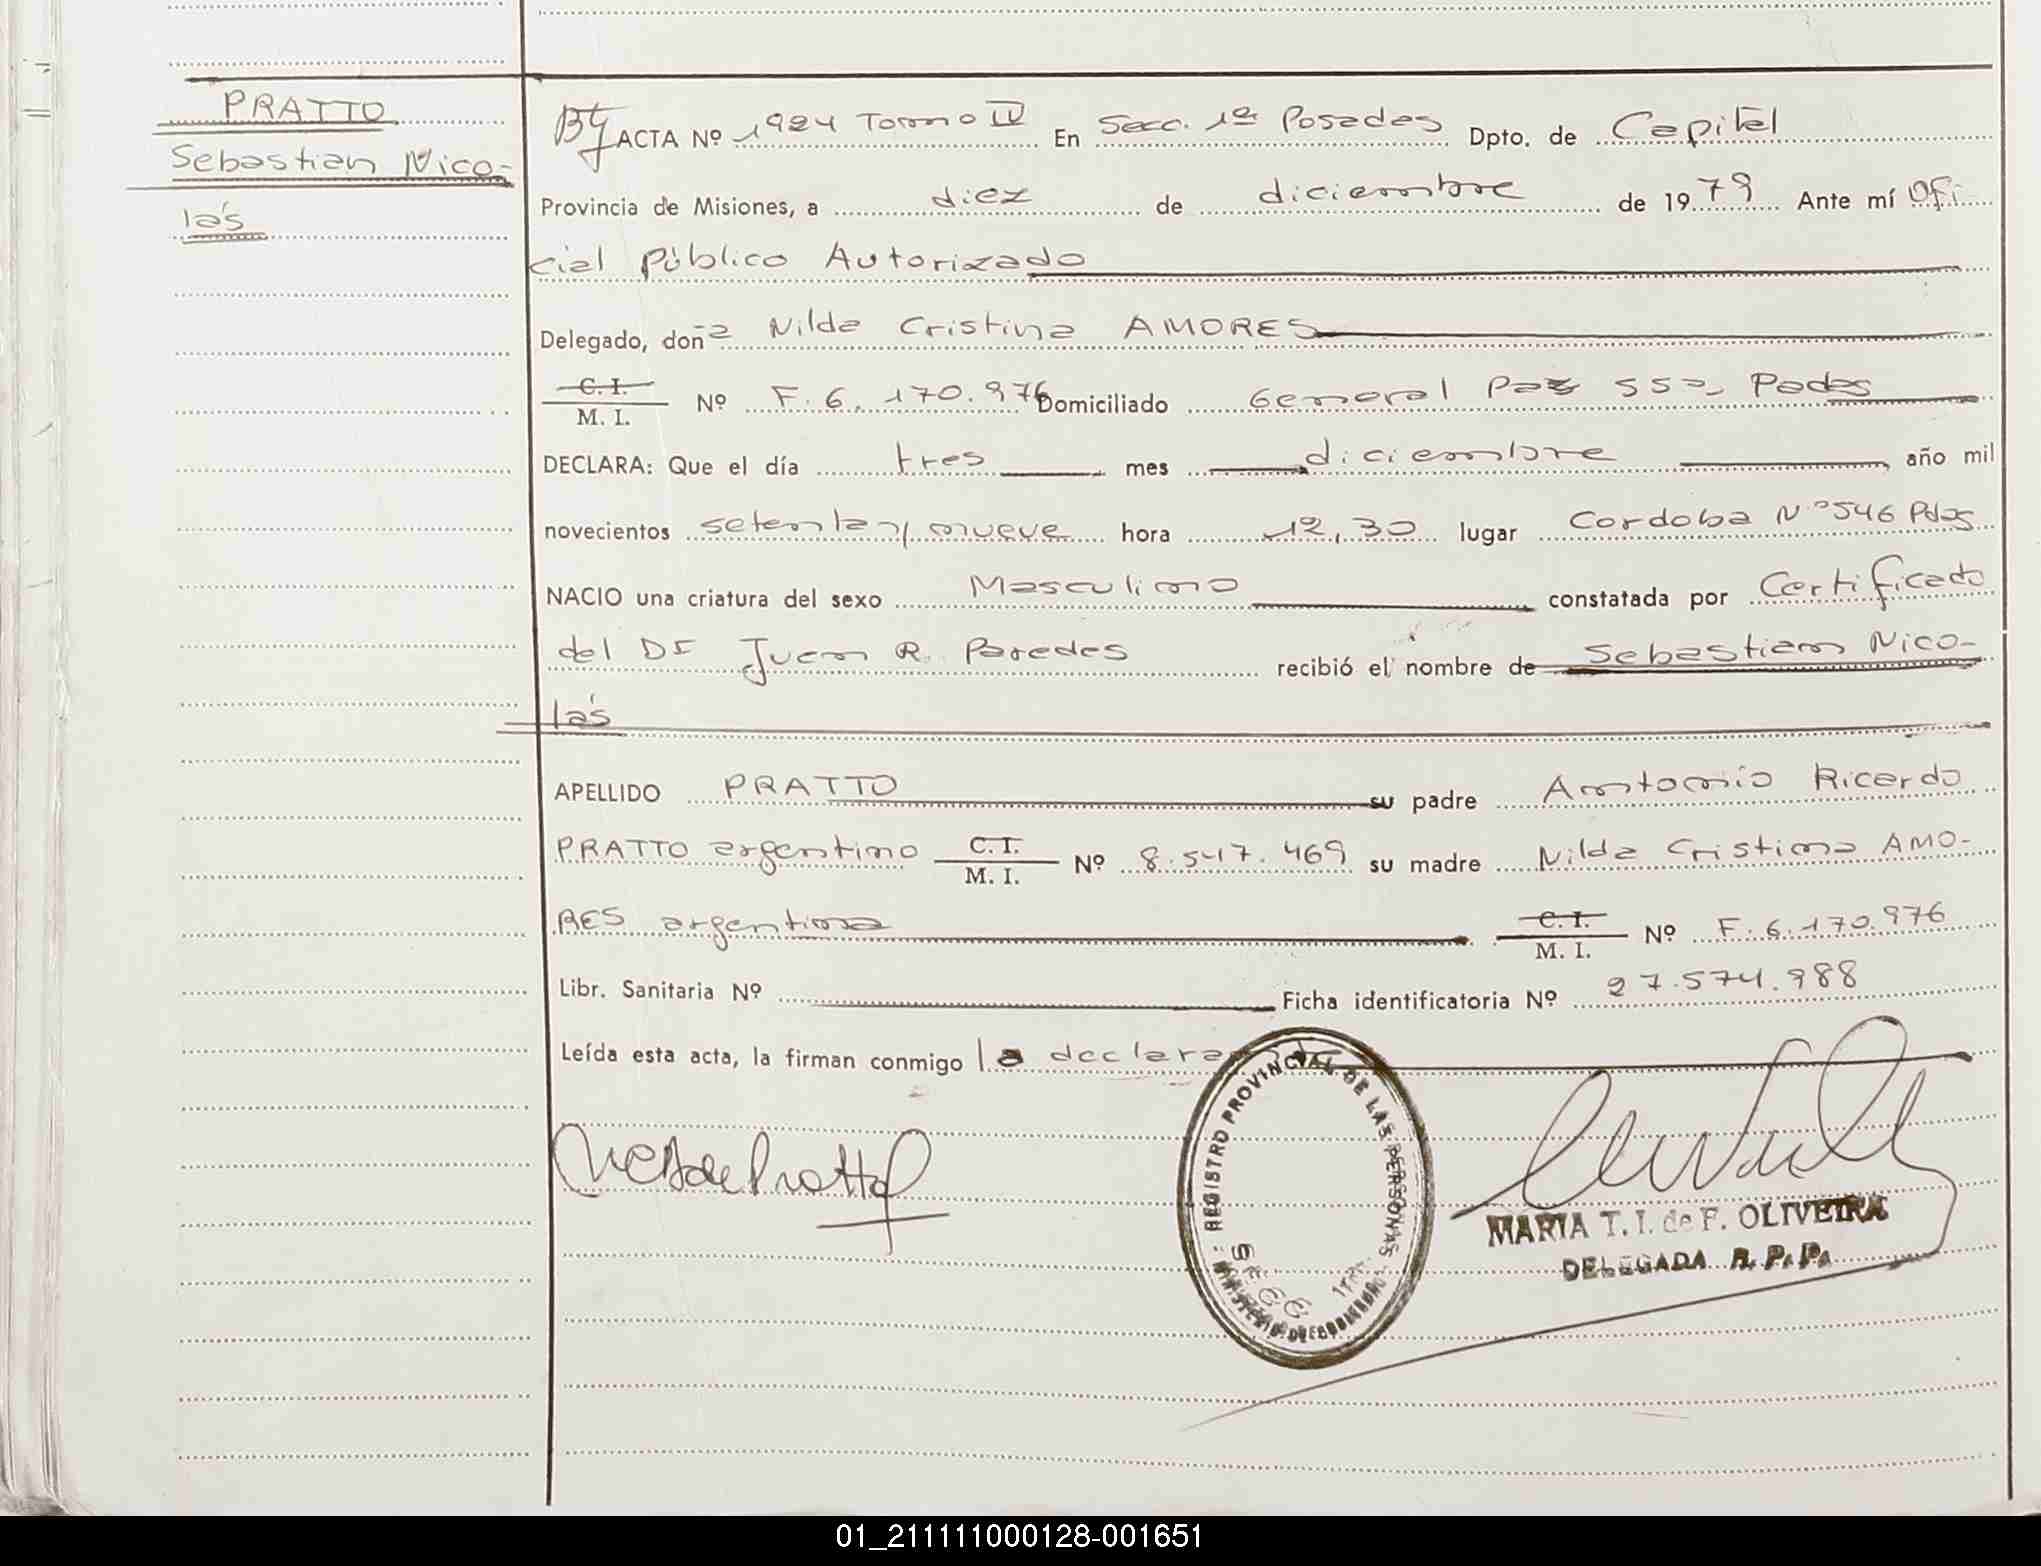 PRATTO
Sebastian Nico-
lás
ACTA Nº 1924 Tomo IV En Secc. 1ª Posadas Dpto. de Capital
Provincia de Misiones, a diez de diciembre de 1979 Ante mí Ofi
cial Público Autorizado
Delegado, doña Nilda Cristina AMORES
C. I.
M. I. Nº F. 6.170.976 Domiciliado General Paz 550, Pdas
DECLARA: Que el día tres mes diciembre año mil
novecientos setenta y nueve hora 12,30 lugar Cordoba Nº 546 Pdas
NACIO una criatura del sexo Masculino constatada por Certificado
del Dr Juan R. Paredes recibió el nombre de Sebastian Nico-
lás
APELLIDO PRATTO su padre Antonio Ricardo
PRATTO argentino C. I.
M. I. Nº 8.547.469 su madre Nilda Cristina AMO-
RES argentina C. I.
M. I. Nº F. 6.170.976
Libr. Sanitaria Nº Ficha identificatoria Nº 27.574.988
Leída esta acta, la firman conmigo la declarante
de Pratto
REGISTRO PROVINCIAL DE LAS PERSONAS
SECC 1ra.
MINISTERIO DE GOBIERNO
MARIA T. I. de F. OLIVEIRA
DELEGADA R. P. P.
01_211111000128-001651